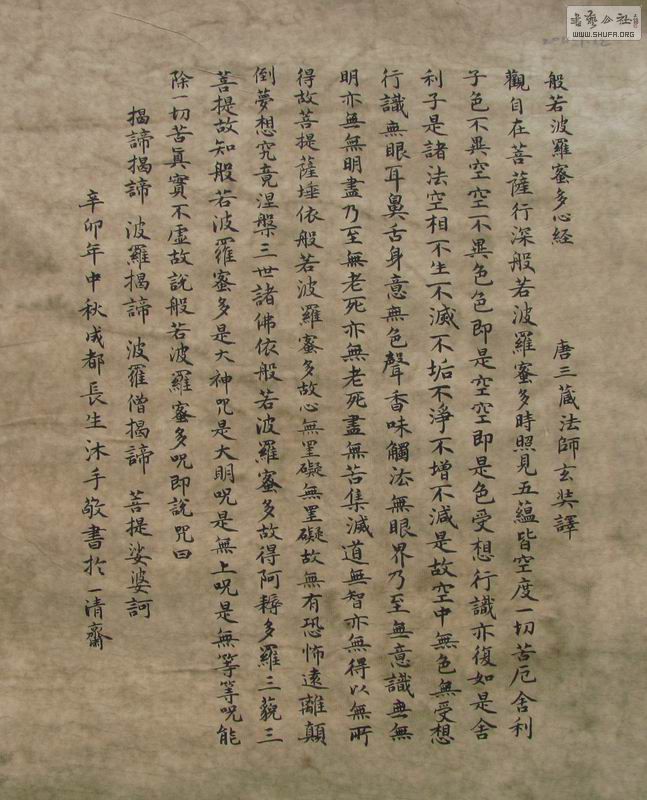 書藝公社
WWW.SHUFA.ORG
般若波羅蜜多心経 唐三藏法師玄奘譯
觀自在菩薩行深般若波羅蜜多時照見五蘊皆空度一切苦厄舍利
子色不異空空不異色色即是空空即是色受想行識亦復如是舍
利子是諸法空相不生不滅不垢不淨不增不減是故空中無色無受想
行識無眼耳鼻舌身意無色聲香味觸法無眼界乃至無意識無無
明亦無無明盡乃至無老死亦無老死盡無苦集滅道無智亦無得以無所
得故菩提薩埵依般若波羅蜜多故心無罣礙無罣礙故無有恐怖遠離顛
倒夢想究竟涅槃三世諸佛依般若波羅蜜多故得阿耨多羅三藐三
菩提故知般若波羅蜜多是大神咒是大明咒是無上咒是無等等咒能
除一切苦真實不虛故說般若波羅蜜多咒即說咒曰
揭諦揭諦 波羅揭諦 波羅僧揭諦 菩提娑婆訶
辛卯年中秋成都長生沐手敬書於一清齋